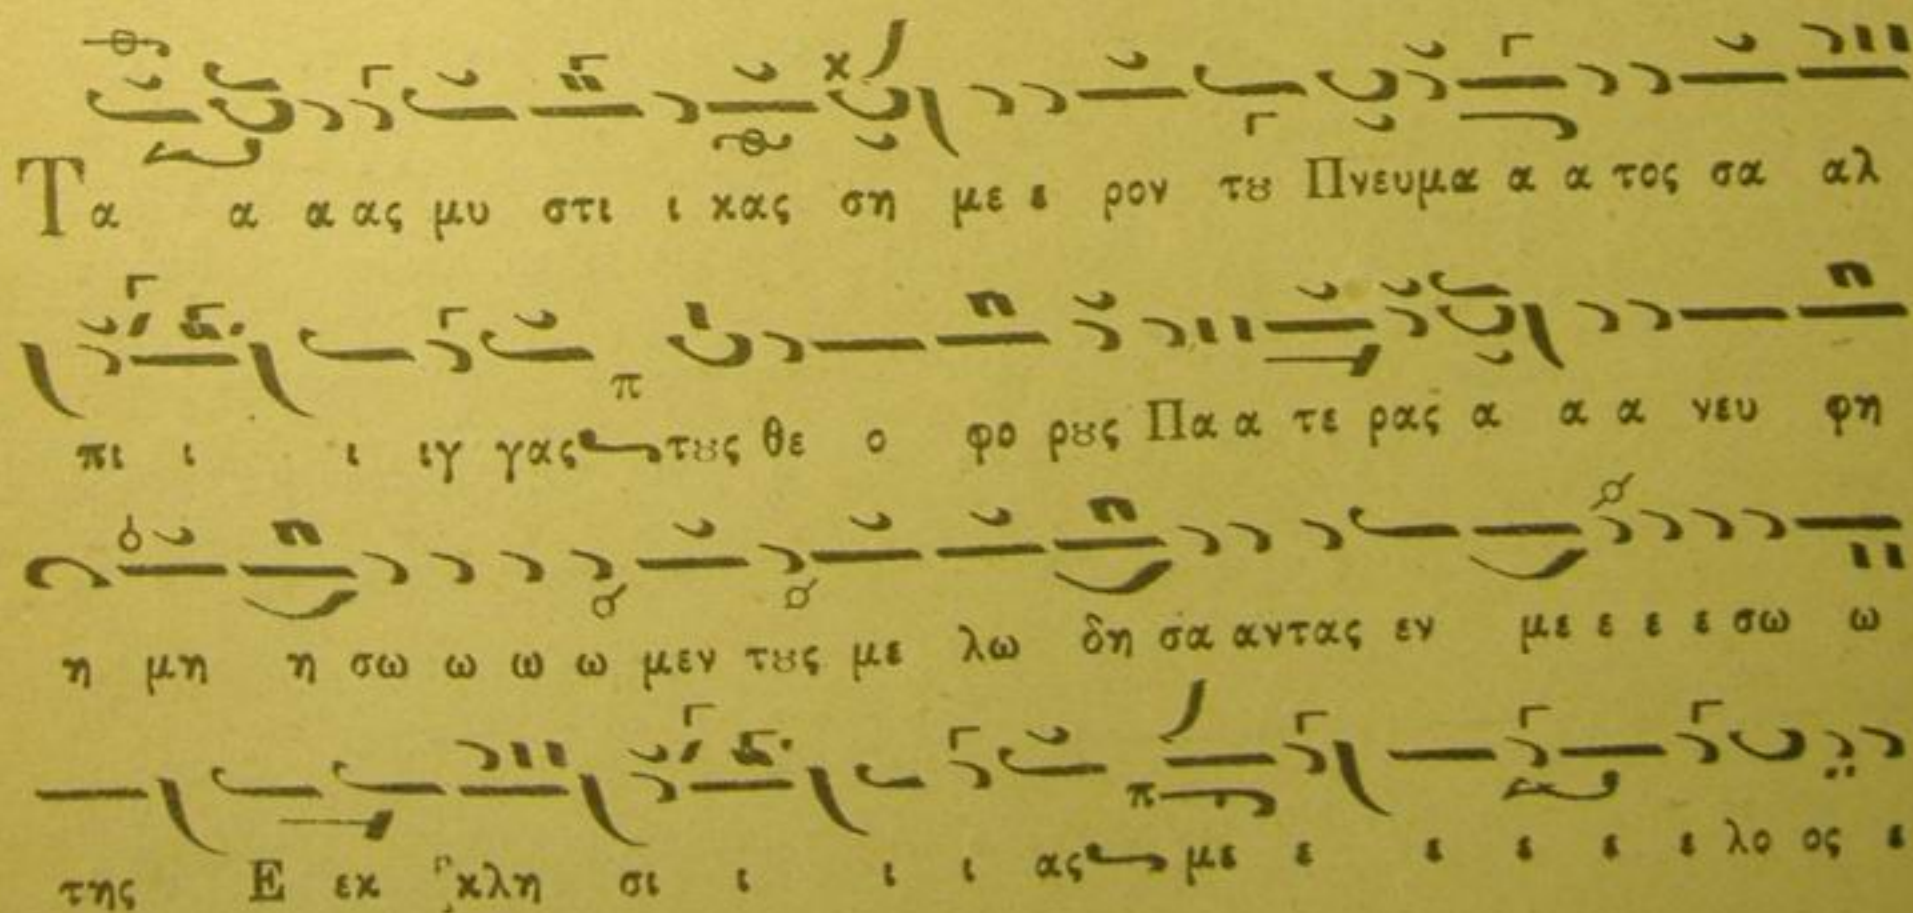 Τα α α ας μυ στι ι κας ση με ε ρον τȣ Πνευμα α α τος σα αλ
πι ι ι ιγ γας τȣς θε ο φο ρȣς Πα α τε ρας α α α νευ φη
η μη η σω ω ω ω μεν τȣς με λω δη σα αντας εν με ε ε ε σω ω
της Ε εκ κλη σι ι ι ι ας με ε ε ε ε ε λο ος ε